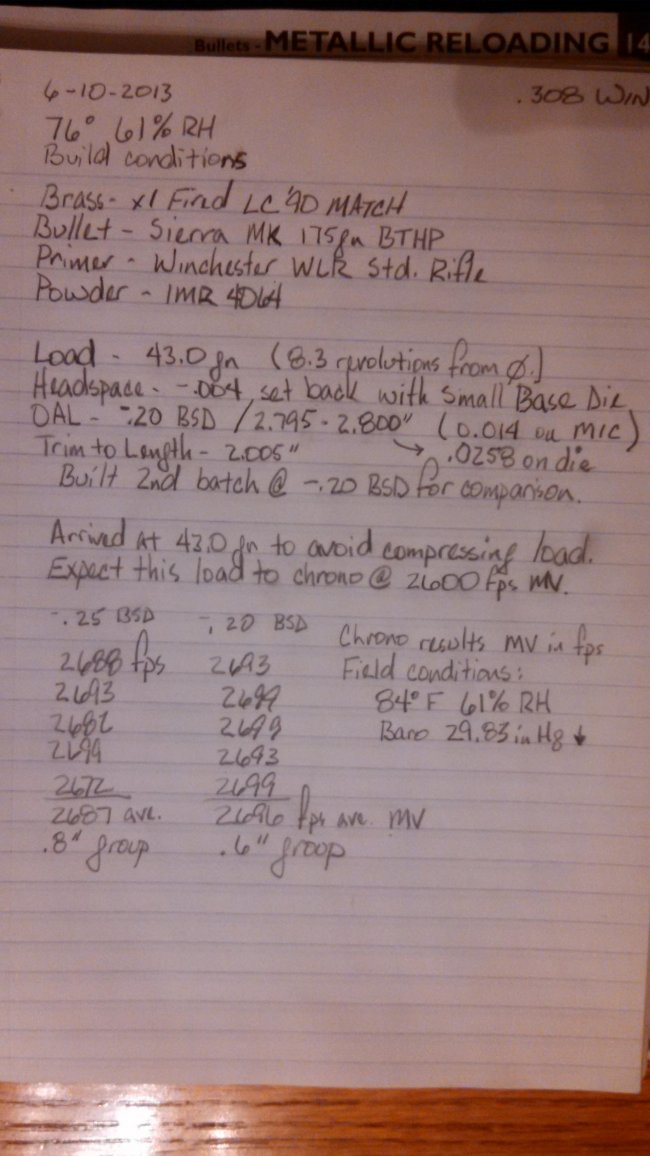 Bullets - METALLIC RELOADING 14
6-10-2013 .308 WIN
76° 61% RH
Build conditions
Brass - x1 Fired LC '90 MATCH
Bullet - Sierra MK 175gn BTHP
Primer - Winchester WLR Std. Rifle
Powder - IMR 4064
Load - 43.0 gn (8.3 revolutions from Ø.)
Headspace - -.004 set back with Small Base Die
OAL - -.20 BSD / 2.795 - 2.800" (0.014 on mic)
Trim to Length - 2.005" → .0258 on die
Built 2nd batch @ -.20 BSD for comparison.
Arrived at 43.0 gn to avoid compressing load.
Expect this load to chrono @ 2600 fps MV.
-.25 BSD -.20 BSD Chrono results MV in fps
2688 fps 2693 Field conditions:
2693 2699 84° F 61% RH
2682 2699 Baro 29.83 in Hg ↓
2699 2693
2672 2699
2687 ave. 2696 fps ave. MV
.8" group .6" group